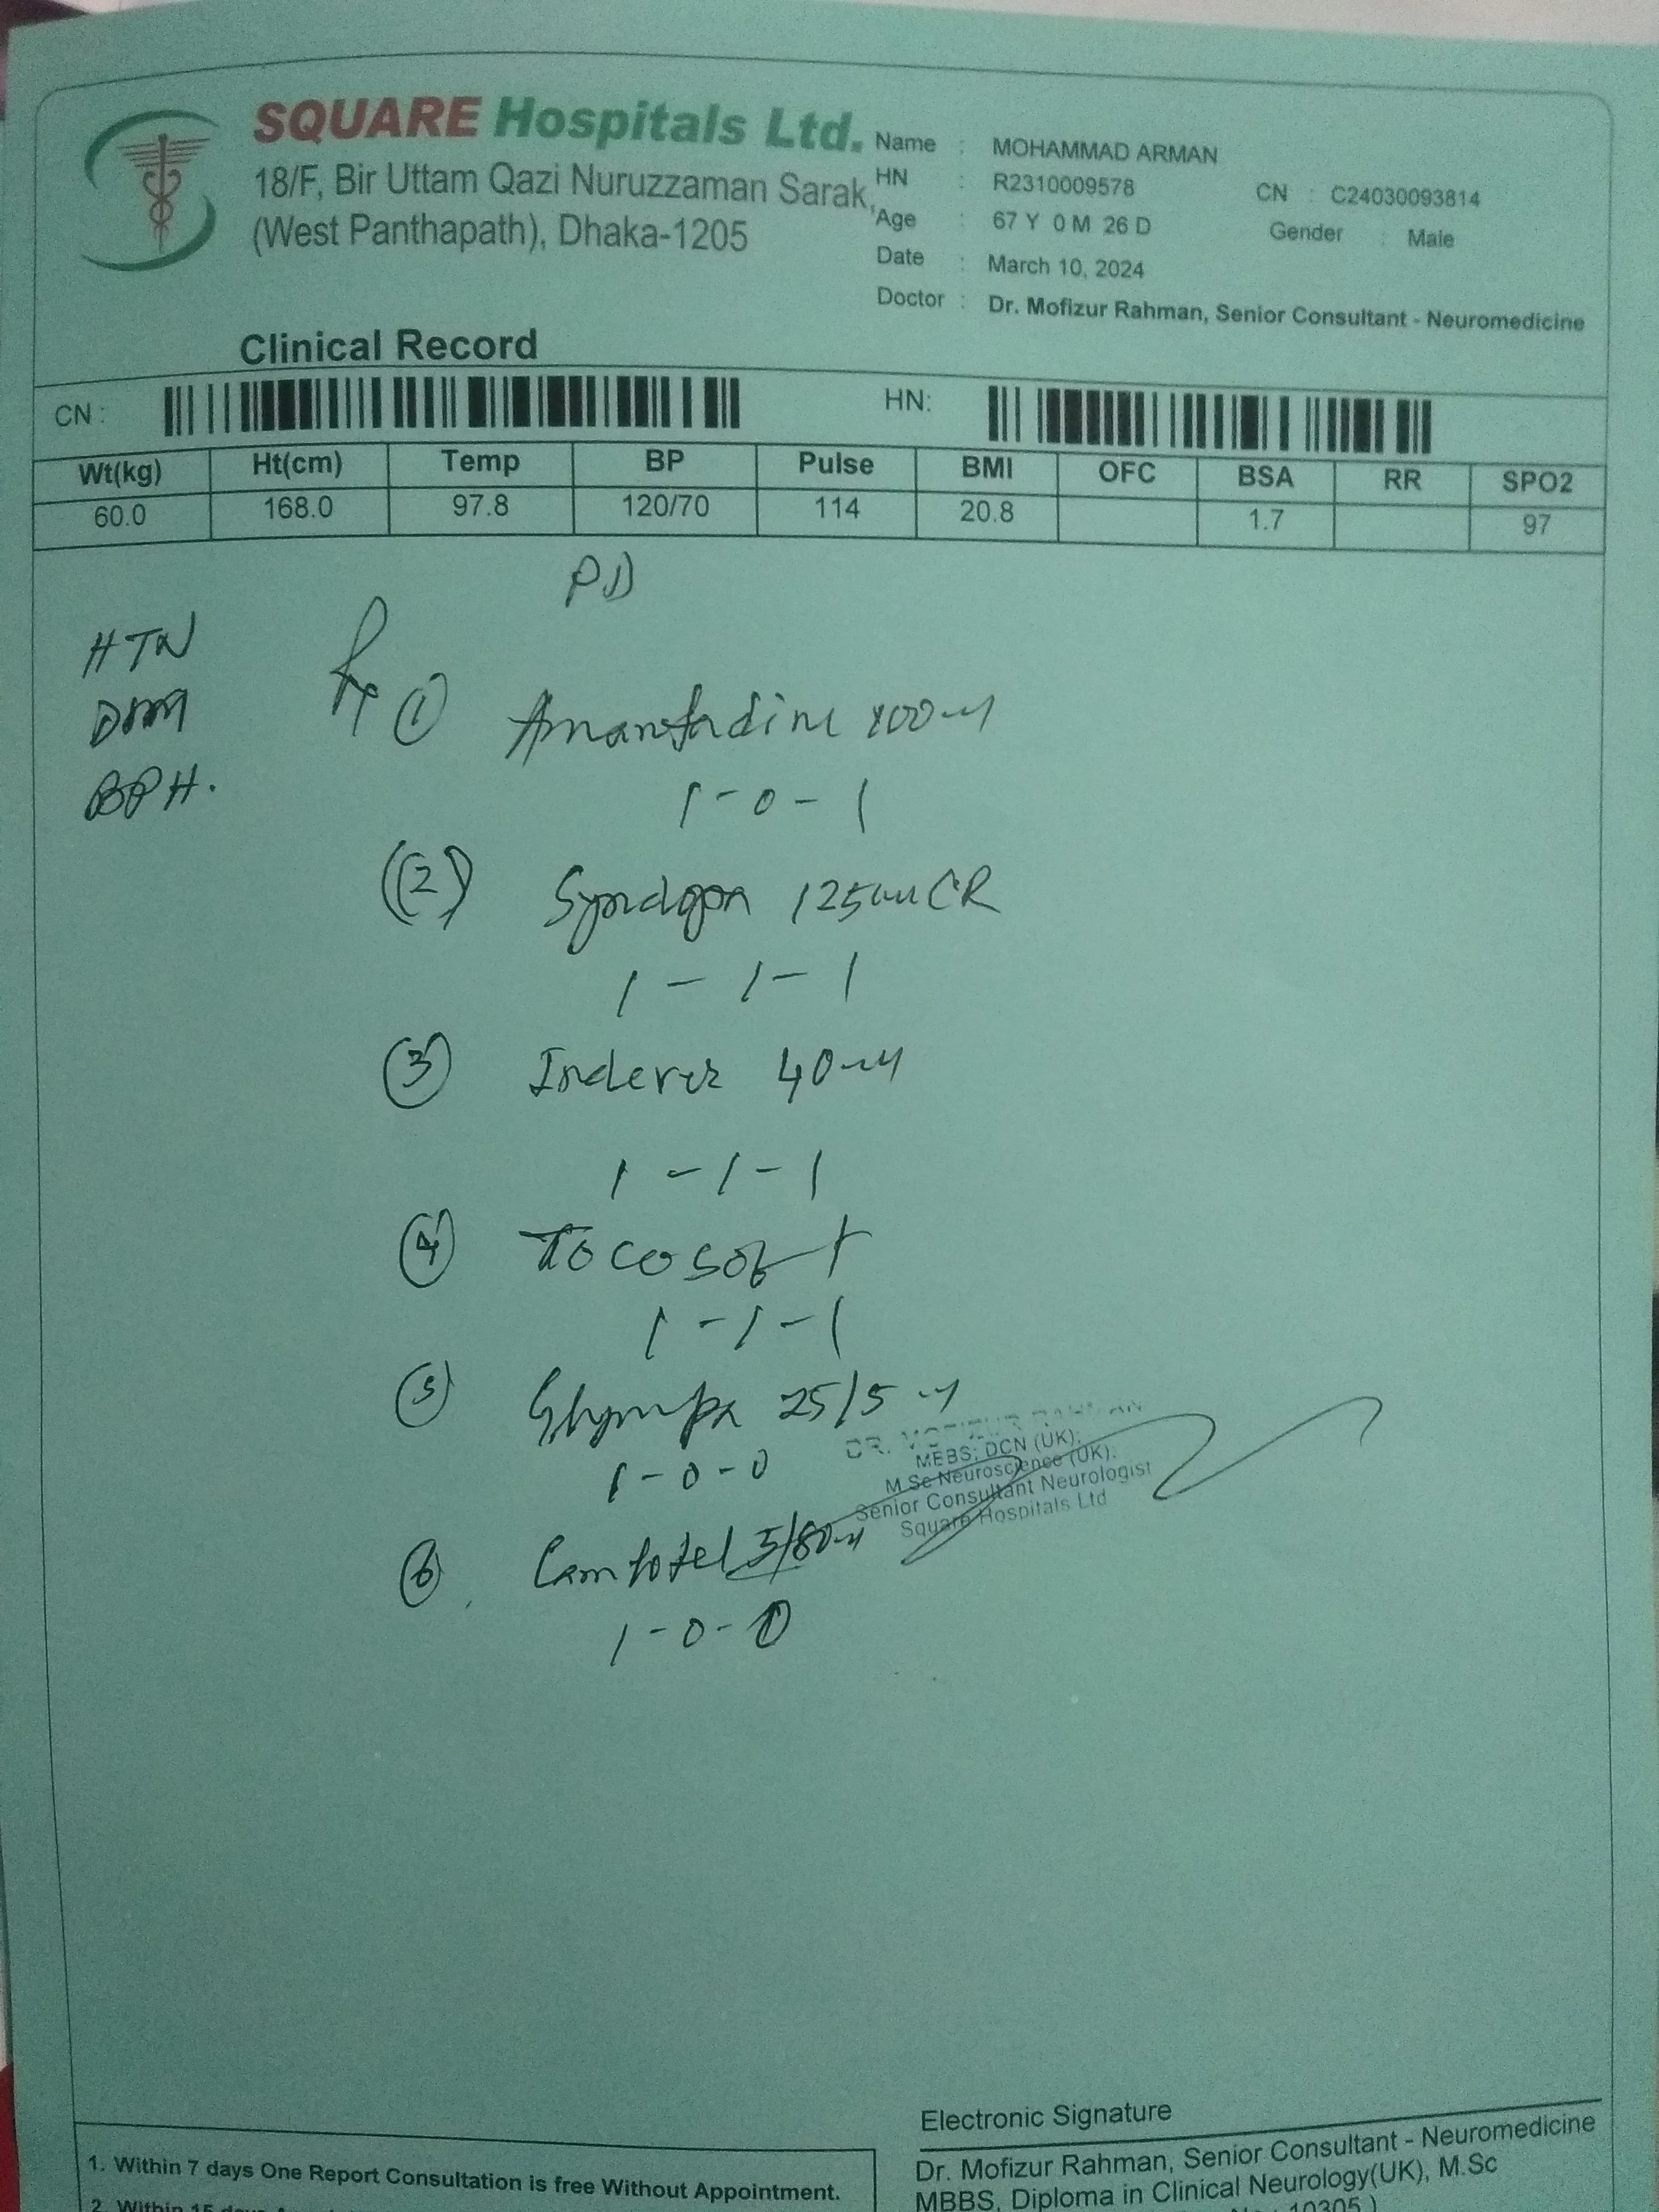 SQUARE Hospitals Ltd.
18/F, Bir Uttam Qazi Nuruzzaman Sarak,
(West Panthapath), Dhaka-1205
Name : MOHAMMAD ARMAN
HN : R2310009578 CN : C24030093814
Age : 67 Y 0 M 26 D Gender : Male
Date : March 10, 2024
Doctor : Dr. Mofizur Rahman, Senior Consultant - Neuromedicine
Clinical Record
CN : HN:
Wt(kg) Ht(cm) Temp BP Pulse BMI OFC BSA RR SPO2
60.0 168.0 97.8 120/70 114 20.8 1.7 97
PD
HTN
DM
BPH.
Rx ① Amantadine 100
1-0-1
(2) Syndopa 125 CR
1-1-1
③ Indever 40
1-1-1
④ Tocosoft
1-1-1
⑤ 25/5
1-0-0
⑥ 5/80
1-0-0
DR. MOFIZUR RAHMAN
MBBS; DCN (UK);
M.Sc Neuroscience (UK).
Senior Consultant Neurologist
Square Hospitals Ltd
Electronic Signature
Dr. Mofizur Rahman, Senior Consultant - Neuromedicine
MBBS, Diploma in Clinical Neurology(UK), M.Sc
10305 )
1. Within 7 days One Report Consultation is free Without Appointment.
2. Within 15